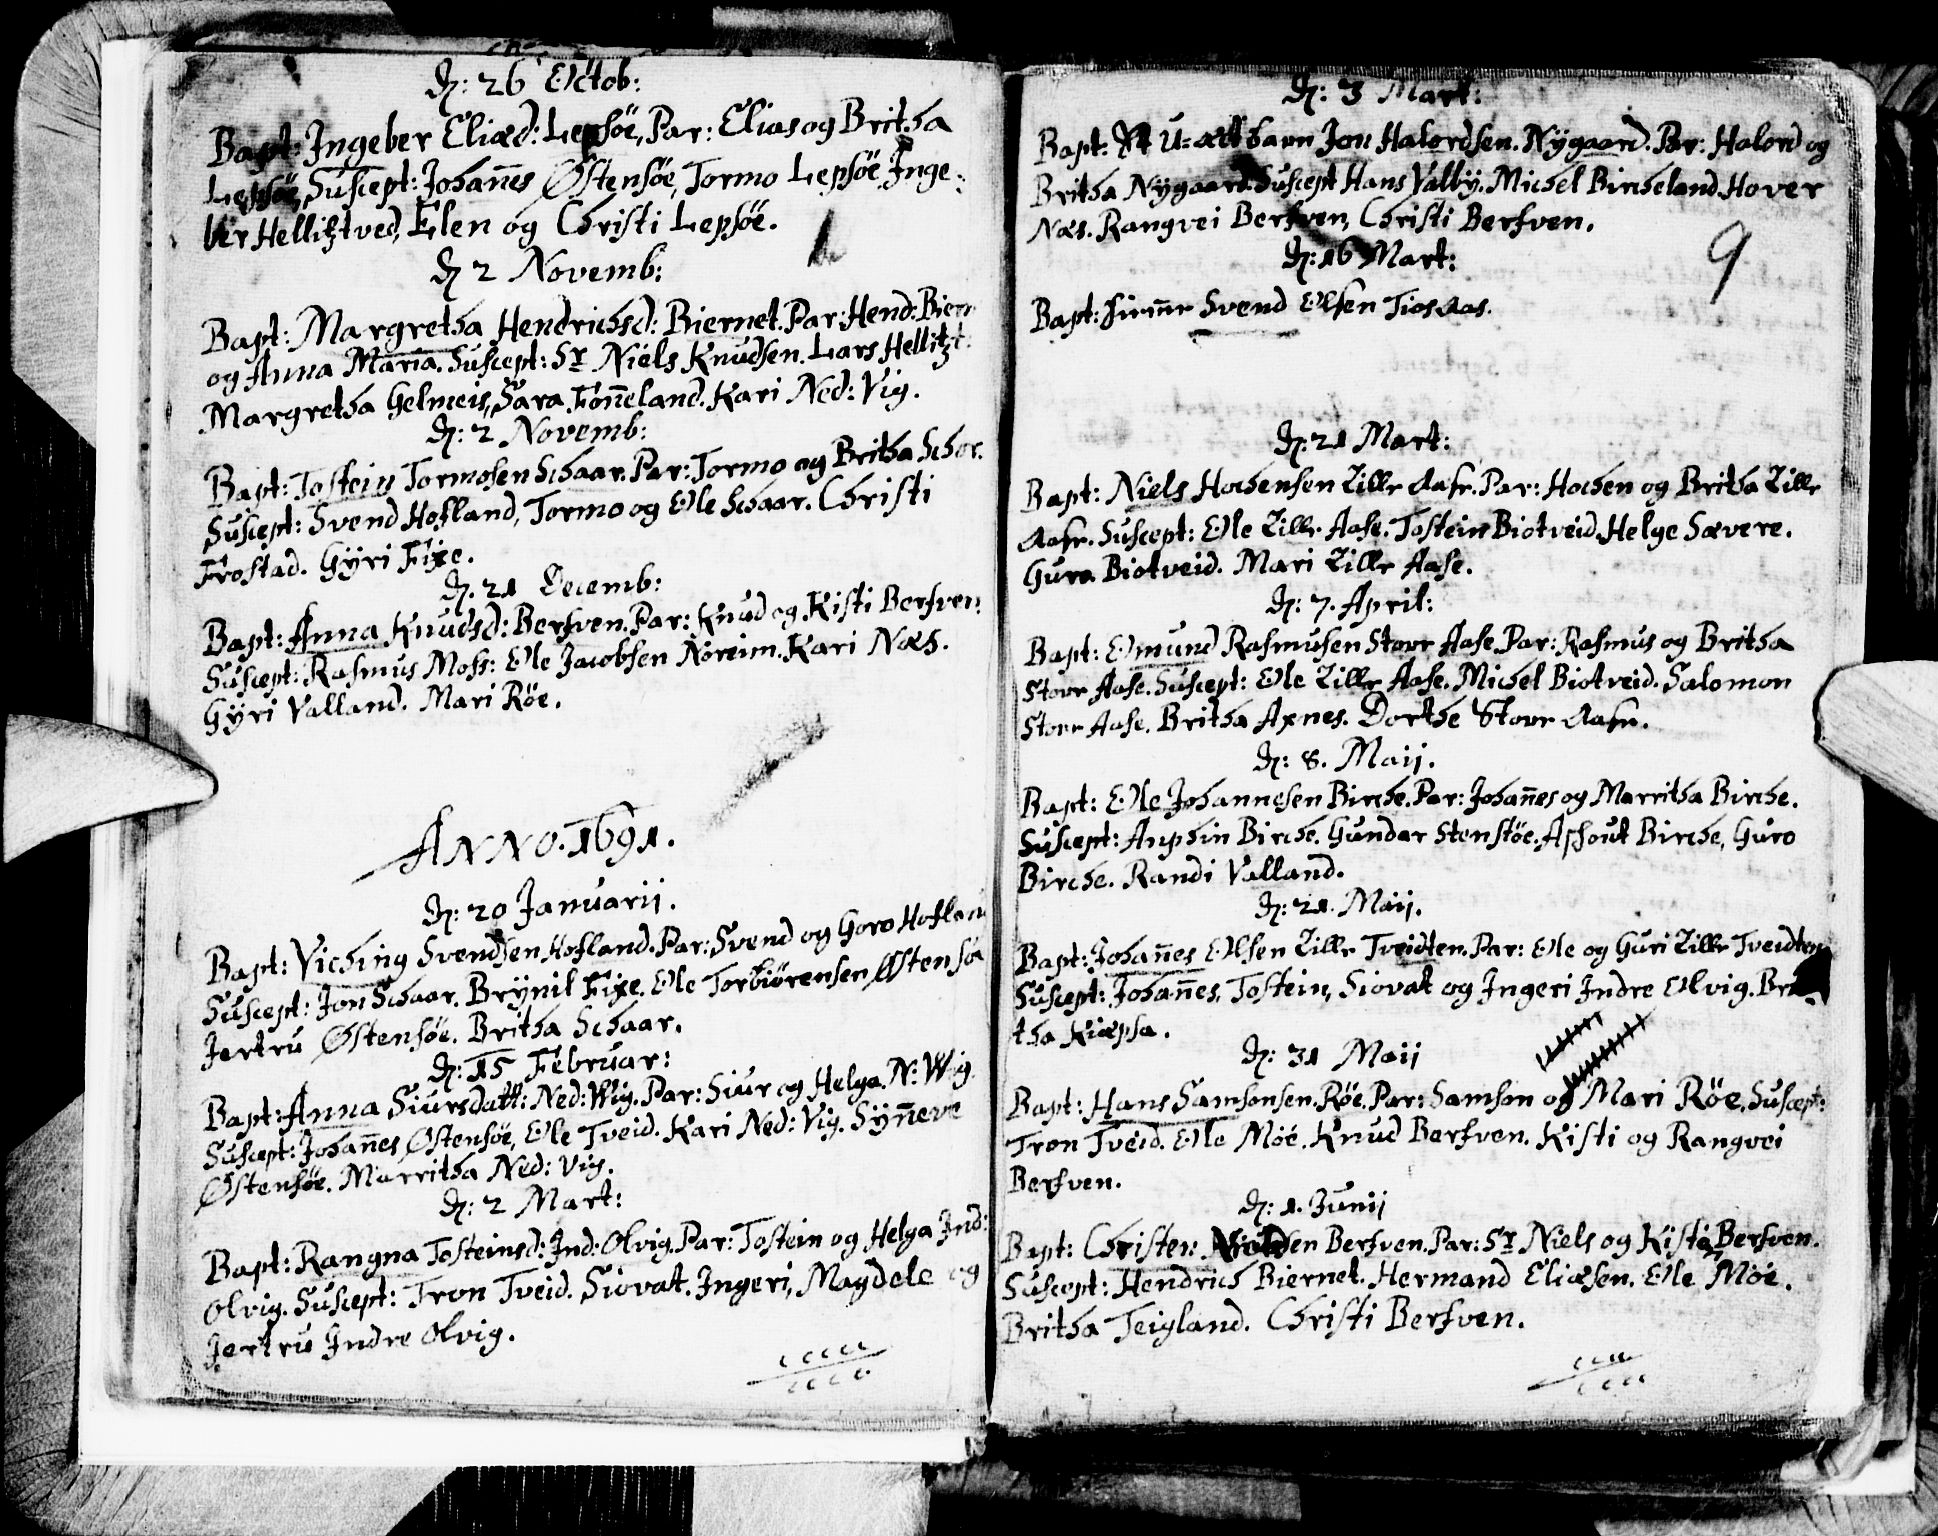 D: 26 Octob:
Bapt: Ingeber Eliæd: Lepsöe, Par: Elias og Britha
Lepsöe, Suscept: Johan̄es Østensöe, Tormo Lepsöe Inge:
ber Hellitztved, Elen og Christi Lepsöe.
D 2 Novemb:
Bapt: Margretha Hendrichsd: Biernet. Par: Hend: Biern
og Anna Maria. Suscept: Sr Niels Knudsen. Lars Hellitzt:
Margretha Gelmeis, Sara Fon̄eland. Kari Ned: Vig.
D: 2 Novemb:
Bapt: Tostein Tormosen Schaar. Par: Tormo og Britha Schar.
Suscept: Svend Hofland, Tormo og Ole Schaar. Christi
Frostad. Gÿri Fixe.
D. 21 Decemb:
Bapt: Anna Knudsd: Berfven. Par: Knud og Kisti Berfven.
Suscept: Rasmus Moss: Ole Jacobsen Noreim. Kari Næs.
Gÿri Valland. Mari Röe.
ANNO. 1691.
D: 20 Januarij.
Bapt: Viching Svendsen Hofland. Par: Svend og Goro Hofland
Suscept: Jon Schaar. Brÿnil Fixe. Ole Torbiörensen Østensöe
Jertru Østensöe. Britha Schaar.
D: 15 Februar:
Bapt: Anna Siursdatt: Ned: Wig. Par: Siur og Helga N: Wig
Suscept: Johan̄es Østensöe, Ole Tveid. Kari Ned: Vig. Sÿn̄eve
Østensöe. Marritha Ned: Vig.
D: 2 Mart:
Bapt: Rangna Tosteinsd: Ind: Olvig. Par: Tostein og Helga Ind:
Olvig. Suscept: Tron Tveid. Siovat. Ingeri, Magdele og
Jertru Indre Olvig.
D: 3 Mart:
9
Bapt: Et U-ætt barn Jon Halordsen. Nÿgaard. Par: Halord og
Britha Nÿgaard. Suscept Hans Valbÿ. Michel Bircheland. Hover
Næs. Rangvei Berfven, Christi Berfven.
D: 16 Mart:
Bapt: Svend Olsen Tiosaas.
D: 21 Mart:
Bapt: Niels Hochensen Lille Aase. Par: Hochen og Britha Lille
Aase. Suscept: Ole Lille Aase. Tostein Biotveid. Helge Sævere.
Guro Biotveid. Mari Lille Aase.
D: 7. April:
Bapt: Omund Rasmusen Store Aase. Par: Rasmus og Britha
Store Aase. Suscept: Ole Lille Aase. Michel Biotveid. Salomon
Store Aase. Britha Axnes. Dorthe Store Aase.
D: 8. Maij.
Bapt: Ole Johannesen Birche. Par: Johan̄es og Marritha Birche.
Suscept: Anphin Birche. Gunder Stenstöe. Ashout Birche, Guro
Birche. Randi Valland.
D: 21. Maij.
Bapt: Johan̄es Olsen Lille Tveidten. Par: Ole og Guri Lille Tveidten
Suscept: Johan̄es, Tostein, Siovat og Ingeri Indre Olvig. Bri
tha Kiæpsa.
D: 31 Maij
Bapt: Hans Samsonsen. Röe. Par: Samson og Mari Röe. Suscept:
Tron Tveid. Ole Möe. Knud Berfven. Kisti og Rangvei
Berfven.
D: 1. Junij
Bapt: Christen Nielsen Berfven. Par: Sr Niels og Kisti Berfven.
Suscept: Hendrich Biernet. Hermand Eliæsen. Ole Möe.
Britha Teigland. Christi Berfven.